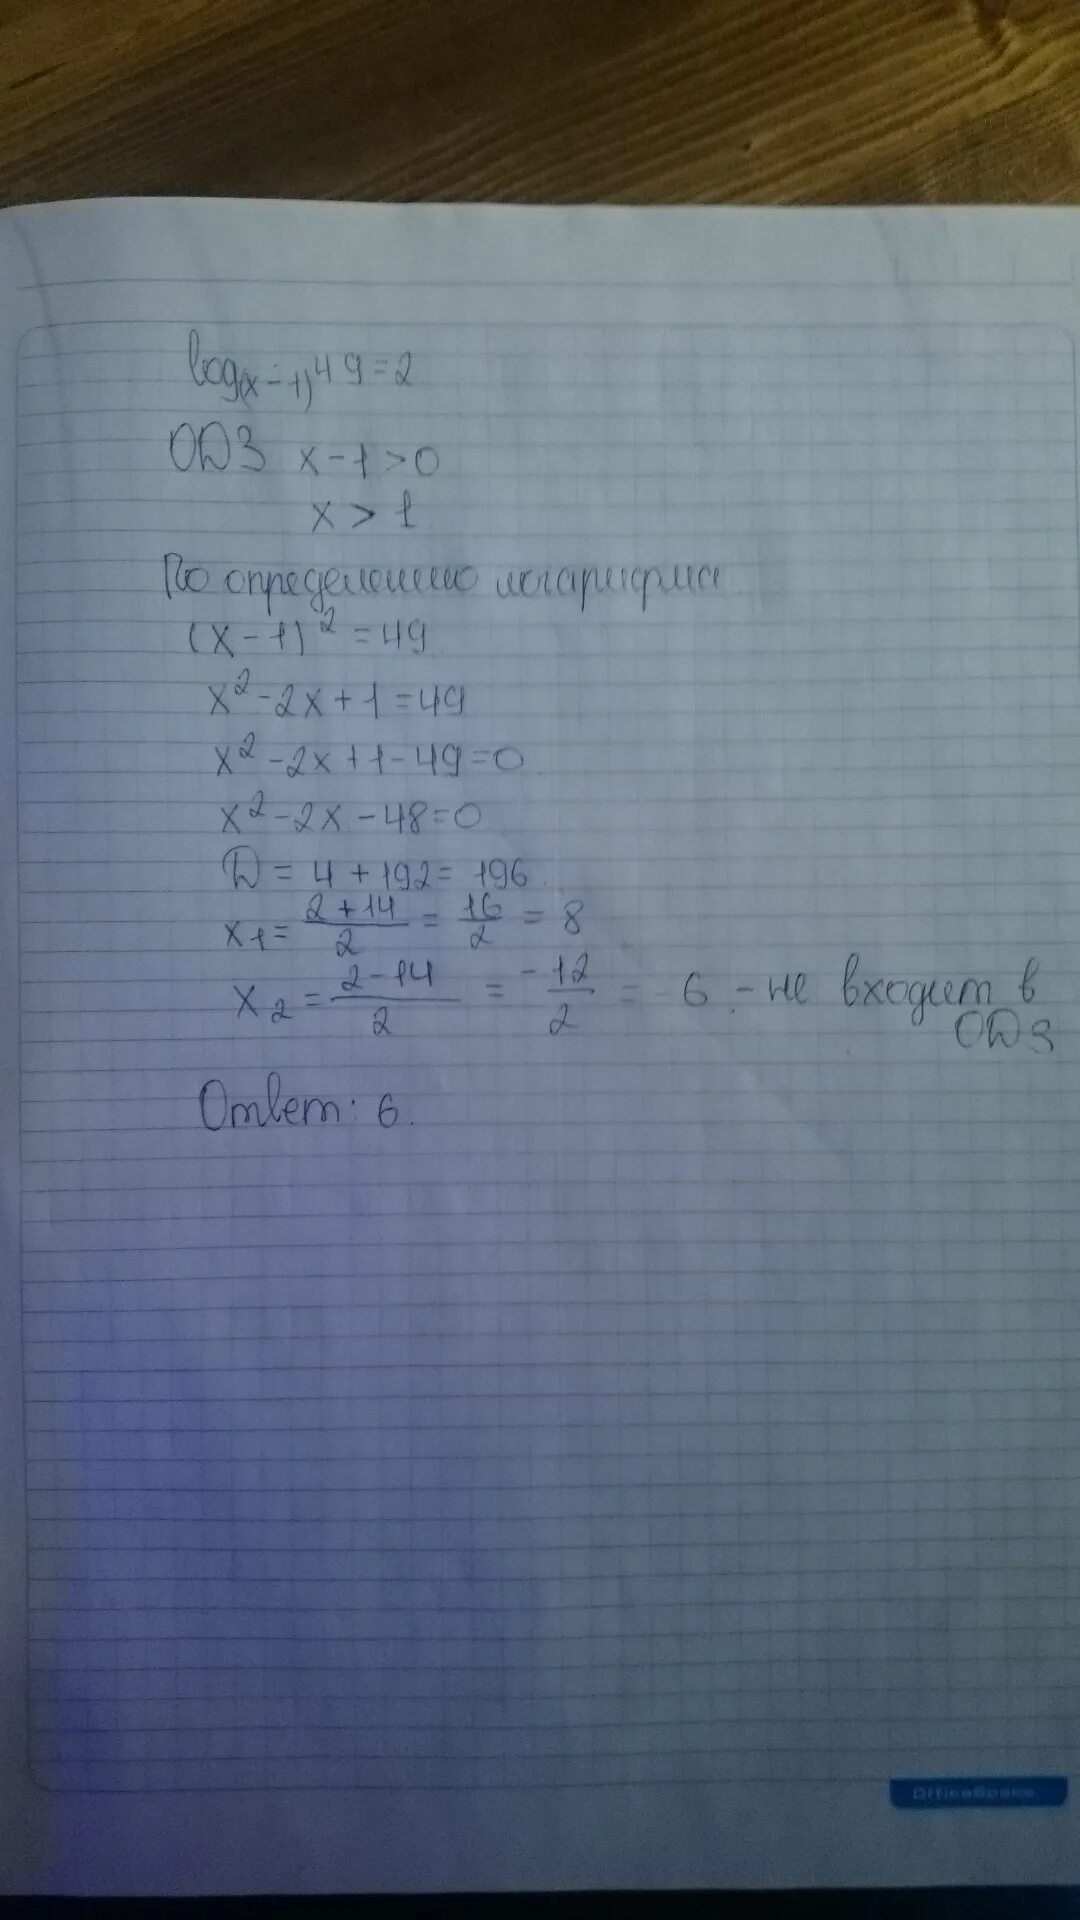 log(x-1) 49=2
ОДЗ x-1>0
x>1
По определению логарифма
(x-1)²=49
x²-2x+1=49
x²-2x+1-49=0
x²-2x-48=0
D=4+192=196
x₁=(2+14)/2=16/2=8
x₂=(2-14)/2=-12/2=-6 - не входит в
ОДЗ
Ответ: 6.
OfficeSpace